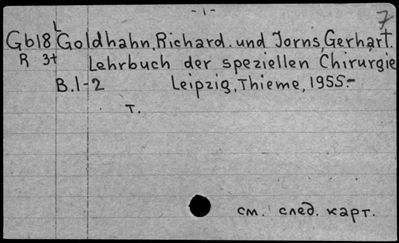 - 1 -
7
L
Gb18 Goldhahn, Richard. und Jorns, Gerhart.
R 3t Lehrbuch der speziellen Chirurgie
B.1-2 Leipzig, Thieme, 1955.-
T.
см. след. карт.